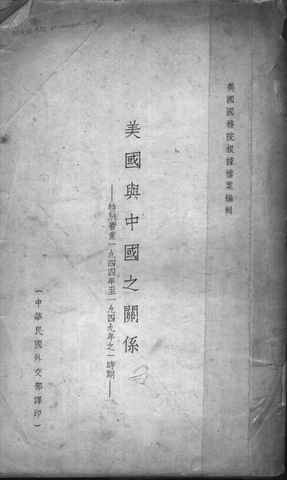 美國國務院根據檔案編輯
美國與中國之關係
——特別着重一九四四年至一九四九年之一時期——
(中華民國外交部譯印)